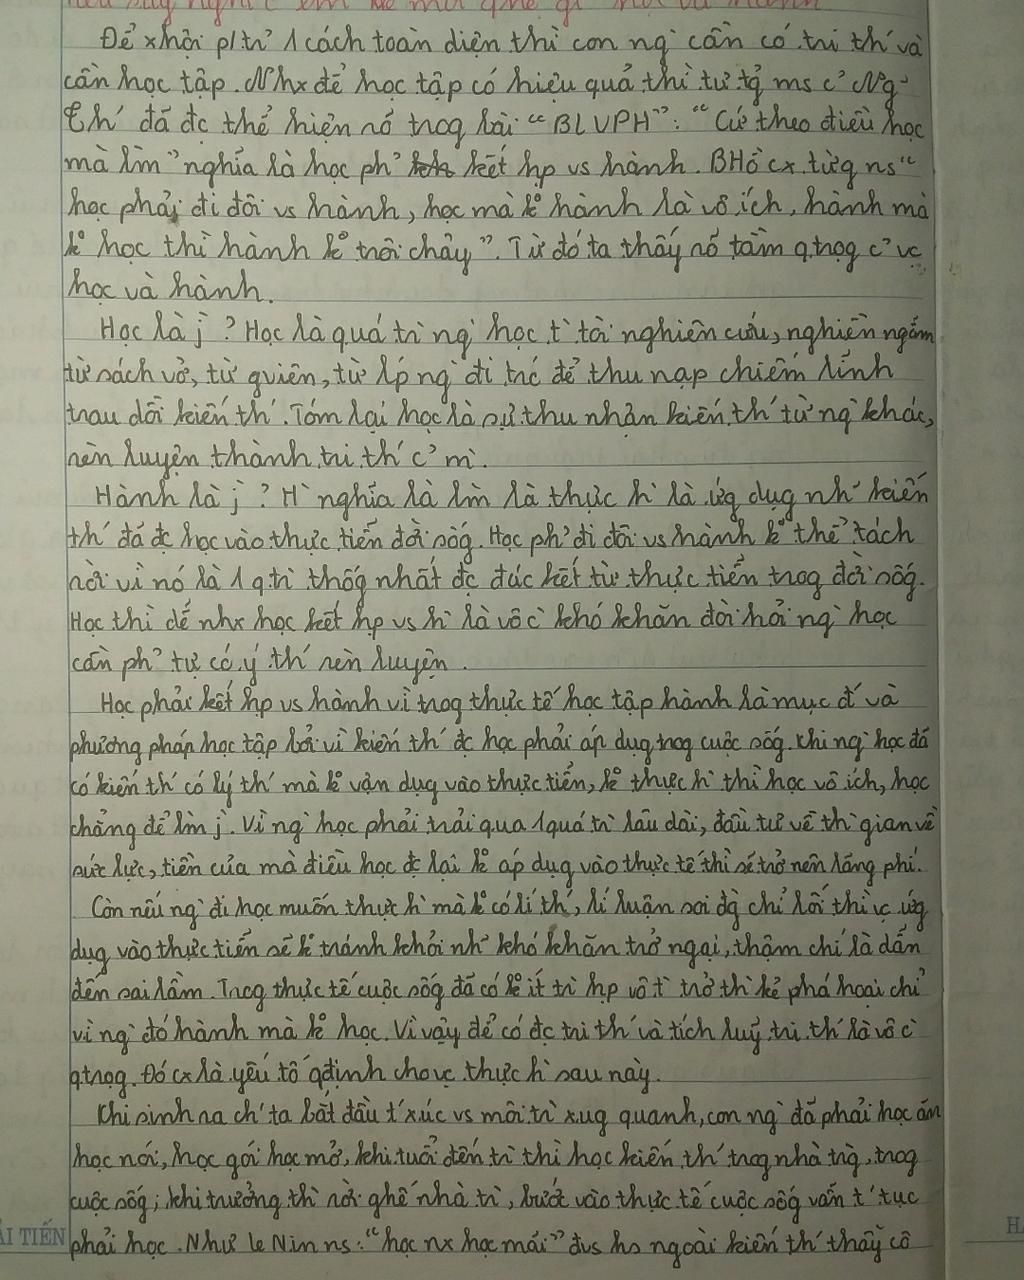 nêu suy nghĩ c² em về mối qhệ gi² học và hành
Để xhội p/tr² 1 cách toàn diện thì con ng` cần có tri th´ và
cần học tập. Nhx để học tập có hiệu quả thì tư tg ms c² Ng~
Th´ đã đc thể hiện rõ trog bài "BLVPH": "Cứ theo điều học
mà lm" nghĩa là học ph² kết hp vs hành. BHồ cx từg ns "
học phải đi đôi vs hành, học mà kº hành là vô ích, hành mà
kº học thì hành kº trôi chảy". Từ đó ta thấy rõ tầm qtrọg c² vc
học và hành.
Học là j`? Học là quá trì ng` học t` tòi nghiên cứu, nghiền ngẫm
từ sách vở, từ gviên, từ lp ng` đi trc để thu nạp chiếm lĩnh
trau dồi kiến th´. Tóm lại học là sự thu nhận kiến th´ từ ng` khác,
rèn luyện thành tri th´ c² m`.
Hành là j`? H` nghĩa là lm là thực h` là ứg dụg nh~ kiến
th´ đã đc học vào thực tiễn đời sốg. Học ph² đi đôi vs hành kº thể tách
rời vì nó là 1 qtrì thốg nhất đc đúc kết từ thực tiễn trog đời sốg.
Học thì dễ nhx học kết hp vs h` là vô c` khó khăn đòi hỏi ng` học
cần ph² tự có ý th´ rèn luyện.
Học phải kết hp vs hành vì trog thực tế học tập hành là mục đ´ và
phương pháp học tập bởi vì kiến th´ đc học phải áp dụg trog cuộc sốg. Khi ng` học đã
có kiến th´ có lý th´ mà kº vận dụg vào thực tiễn, kº thực h` thì học vô ích, học
chẳng để lm j`. Vì ng` học phải trải qua 1 quá trì lâu dài, đầu tư về th` gian về
sức lực, tiền của mà điều học đc lại kº áp dụg vào thực tế thì sẽ trở nên lãng phí.
Còn nếu ng` đi học muốn thực h` mà kº có lí th´, lí luận soi đg` chỉ lối thì vc ứg
dụg vào thực tiễn sẽ kº tránh khỏi nh~ khó khăn trở ngại, thậm chí là dẫn
đến sai lầm. Trog thực tế cuộc sốg đã có kº ít tr` hp vô t` trở th` kẻ phá hoại chỉ
vì ng` đó hành mà kº học. Vì vậy để có đc tri th´ và tích luỹ tri th´ là vô c`
qtrọg. Đó cx là yếu tố qđịnh cho vc thực h` sau này.
Khi sinh ra ch´ ta bắt đầu t´ xúc vs môi tr` xug quanh, con ng` đã phải học ăn
học nói, học gói học mở, khi tuổi đến tr` thì học kiến th´ trog nhà trg`, trog
cuộc sốg; khi trưởng th` rời ghế nhà tr`, bước vào thực tế cuộc sốg vẫn t´ tục
phải học. Như Lê Nin ns: "học nx học mãi" đvs hs ngoài kiến th´ thầy cô
ẢI TIẾN
HẢ